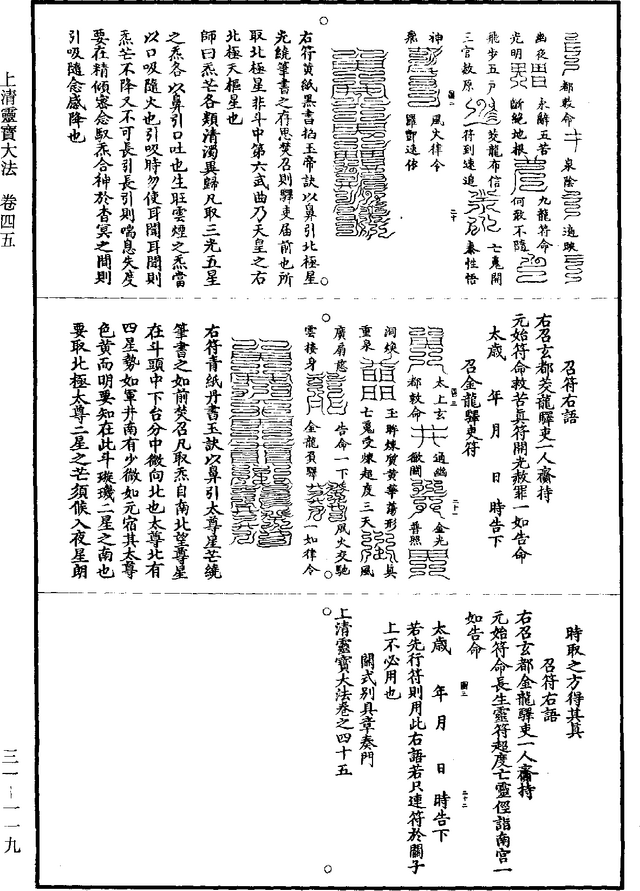 都救命 泉陰 通映
幽夜 永辭五苦 九龍符命
光明 斷絕地根 何敢不隨
飛步五户 茭龍布信 七鬼開
三官赦原 符到速追 秦性悟
神 風火律令
羅酆遠佈
右符黃紙黑書掐玉帝訣以鼻引北極星
光繞筆書之存思焚召則驛吏届前也所
取北極星非斗中第六武曲乃天皇之右
北極天樞星也
師曰炁芒各類清濁異歸凡取三光五星
之炁各以鼻引口吐也生旺雲煙之炁當
以口吸隨火也引吸時勿使耳聞耳聞則
炁芒不降又不可長引長引則喘息失度
要在精傾密念馭炁合神於杳冥之間則
引吸隨念感降也
召符右語
右召玄都茭龍驛吏一人齎持
元始符命救苦真符開光赦罪一如告命
太歲 年 月 日 時告下
召金龍驛吏符
太上玄 通幽 金光
都救命 徹開 普照
洞煥 玉眸煉質黃華蕩形 真
重泉 七鬼受煉超度三天 風
廣扇慈 告命一下 風火交馳
雲接身 金龍頁驛 一如律令
右符青紙丹書玉訣以鼻引太尊星芒繞
筆書之如前焚召凡取炁自南北望尊星
在斗頭中下台分中微向北也太尊北有
四星勢如軍井南有少微如元宿其太尊
色黃而明要知在此斗璇璣二星之南也
要取北極太尊二星之芒須候入夜星朗
時取之方得其真
召符右語
右召玄都金龍驛吏一人齎持
元始符命長生靈符超度亡靈徑詣南宮一
如告命
太歲 年 月 日 時告下
若先行符則用此右語若只連符於關子
上不必用也
關式別具章奏門
上清靈寶大法卷之四十五
上清靈寶大法 卷四五
三一－一一九